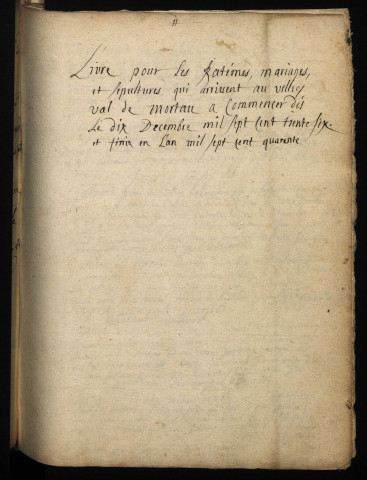 Livre pour les Batémes, mariages,
et sepultures qui arrivent au villers
val de mortau a Commencer dés
Le dix Decembre mil sept cent trente six
et finir en Lan mil sept cent quarente